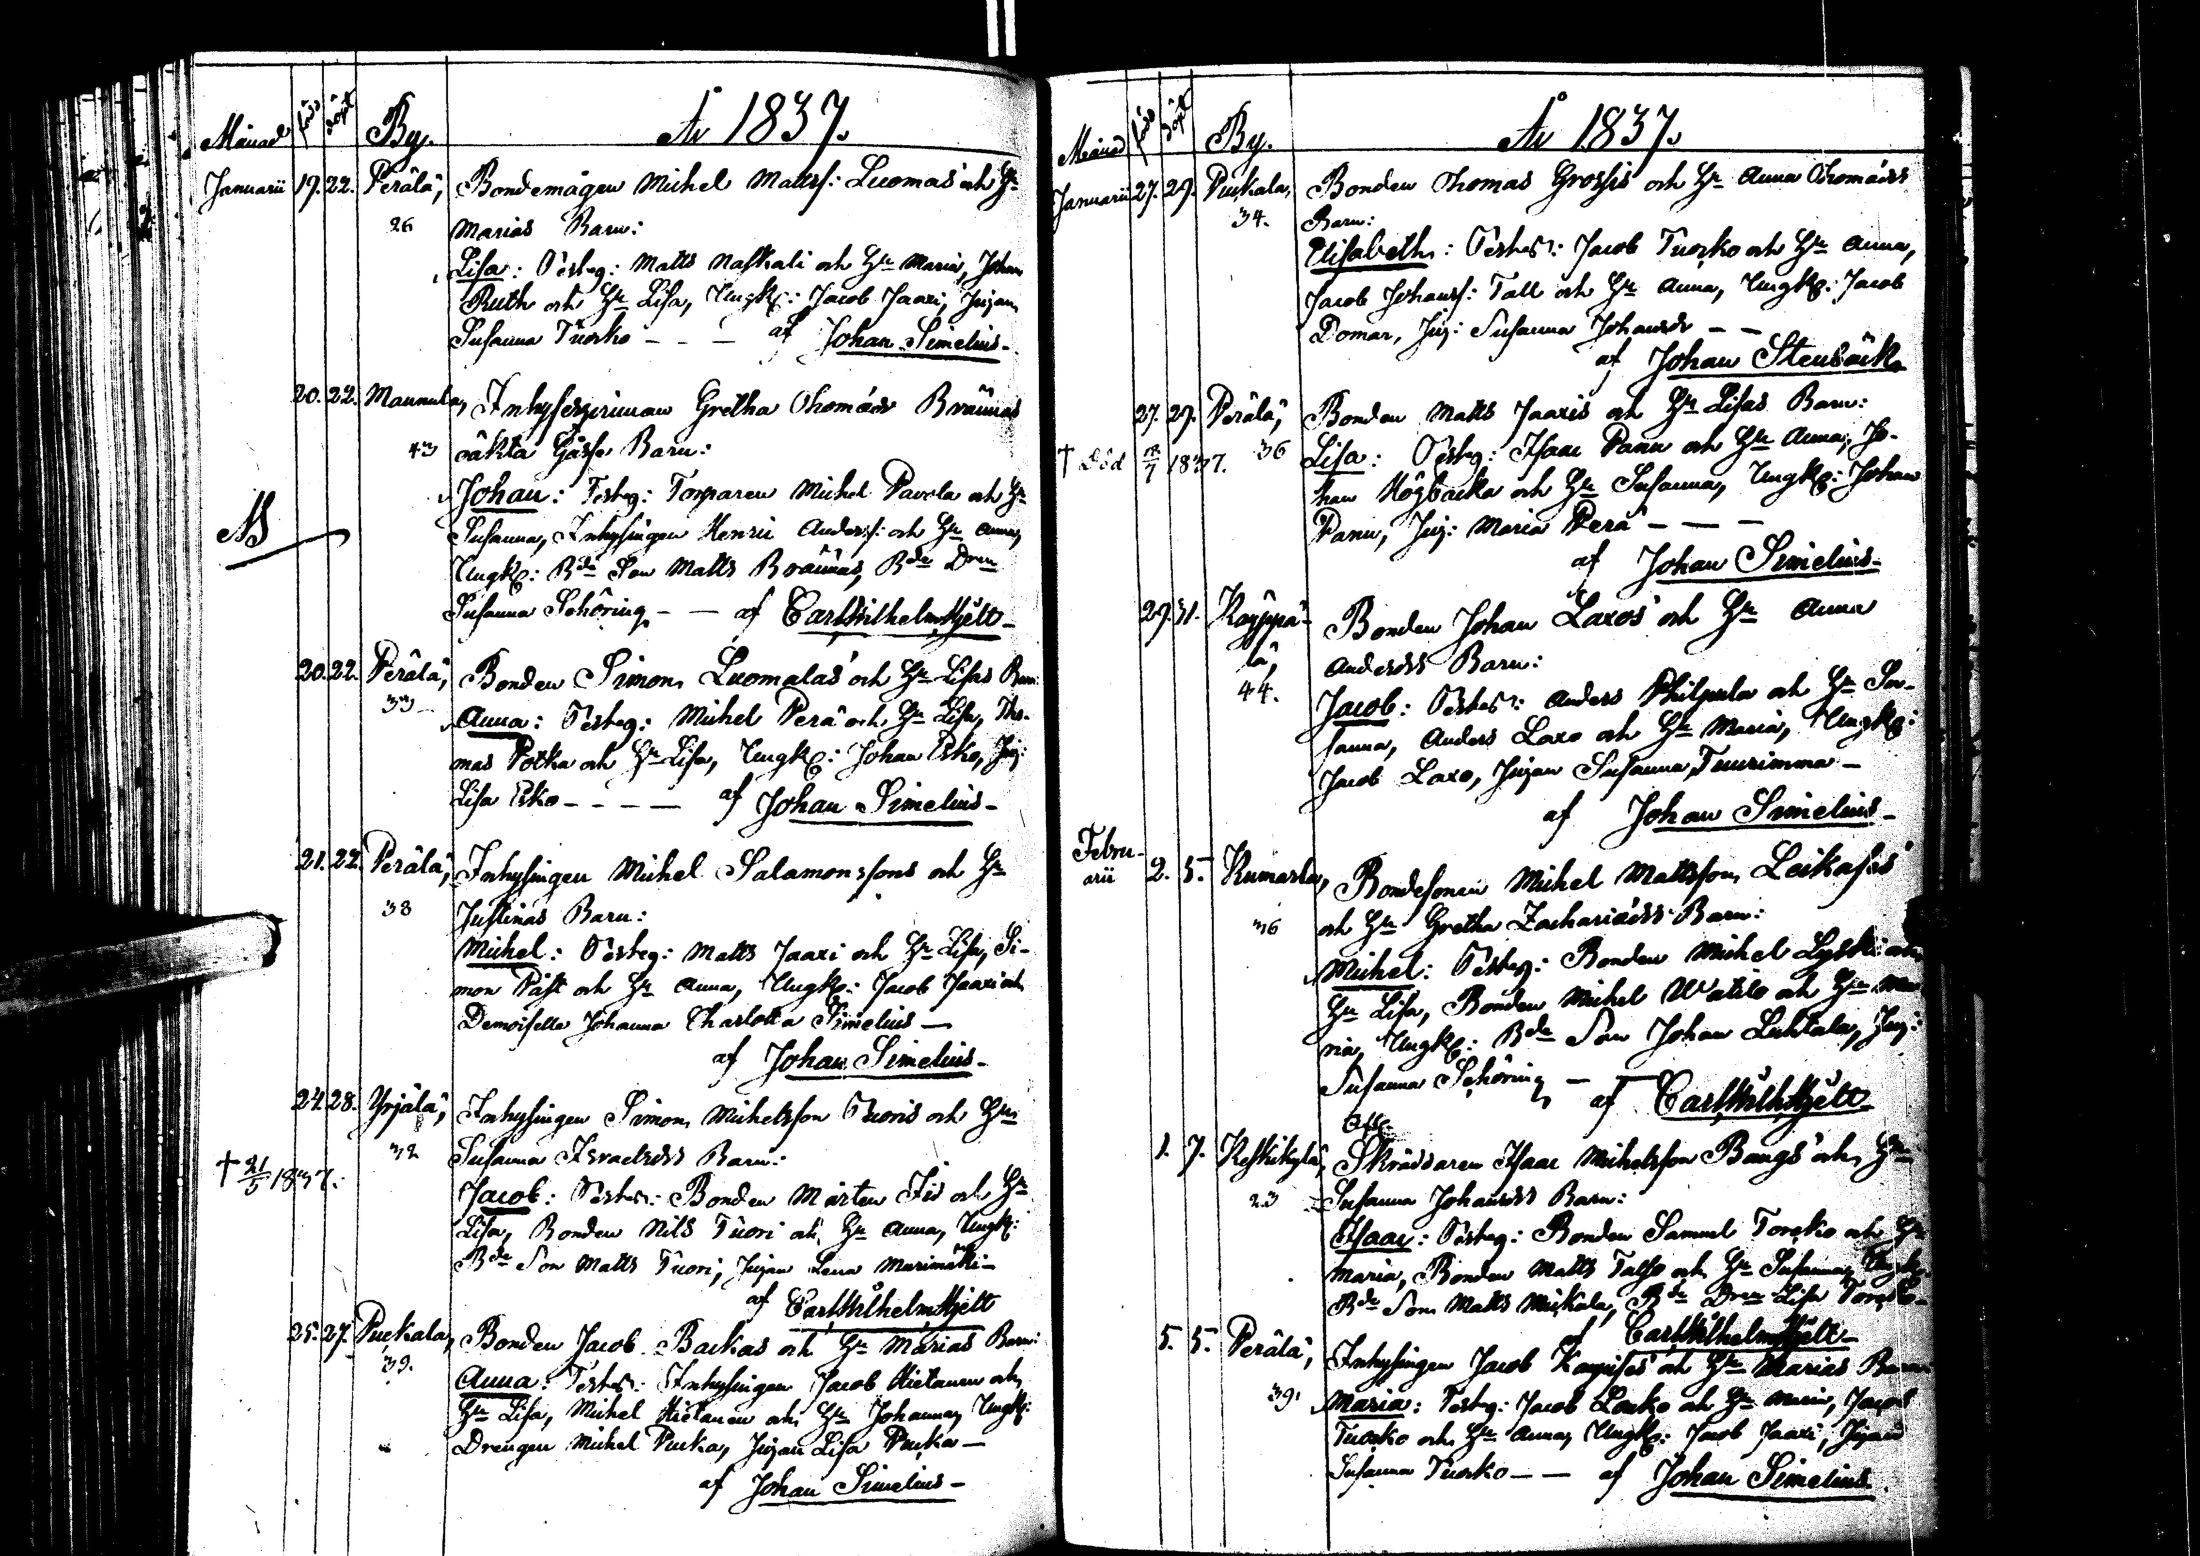 År 1837.
Månad född döpt By.
Januarii 19. 22. Perälä, Bondemågen Michel Mattss: Luomas och Hu
26 Marias Barn:
Lisa: Testeg: Matts Naskali och Hu Maria, Johan
Ruth och Hu Lisa, Ungk: Jacob Jaari, Pigan
Susanna Tuorko - - - af Johan Simelius-
20. 22. Mannula, Inhysespigan Gretha Thomædr Brännas
43 oäkta Gosse Barn:
Johan: Testeg: Torparen Michel Pavola och Hu
AB Susanna, Inhysingen Henric Anderss: och Hu Anna,
Ungk: Bde Son Matts Brännas, Bde Dren
Susanna Schöring - - af Carl Wilhelm Hjelt-
20. 22. Perälä, Bonden Simon Luomalas och Hu Lisas Barn:
33 Anna: Testeg: Michel Perä och Hu Lisa, Tho-
mas Potka och Hu Lisa, Ungk: Johan Esko, Pig:
Lisa Esko - - - - af Johan Simelius-
21. 22. Perälä, Inhysingen Michel Salamonssons och Hu
38 Justinas Barn:
Michel: Testeg: Matts Jaari och Hu Lisa, Si-
mon Päst och Hu Anna, Ungk: Jacob Jaari och
Demoiselle Johanna Charlotta Simelius -
af Johan Simelius-
24. 28. Yrjälä, Inhysingen Simon Michelsson Tuoris och Hu
32 Susanna Israelsdrs Barn:
† 21/5 1837. Jacob: Testes: Bonden Mårten Iis och Hu
Lisa, Bonden Nils Tuori och Hu Anna, Ungk:
Bde Son Matts Tuori, Pigan Lena Marimäki-
af Carl Wilhelm Hjelt
25. 27. Puckala, Bonden Jacob Backas och Hu Marias Barn:
39. Anna: Testes: Inhysingen Jacob Hietanen och
Hu Lisa, Michel Hietanen och Hu Johanna, Ungk:
Drengen Michel Pucka, Pigan Lisa Pucka -
af Johan Simelius-
År 1837.
Månad född döpt By.
Januarii 27. 29. Puckala, Bonden Thomas Grossis och Hu Anna Thomædrs
34. Barn:
Elisabeth: Testes: Jacob Tuorko och Hu Anna,
Jacob Johanss: Tall och Hu Anna, Ungk: Jacob
Domar, Pig: Susanna Johansdr - -
af Johan Stenbäck
27. 29. Perälä, Bonden Matts Jaaris och Hu Lisas Barn:
† Död 1837. 36 Lisa: Testeg: Isaac Panu och Hu Anna, Jo-
han Högbacka och Hu Susanna, Ungk: Johan
Panu, Pig: Maria Perä - - -
af Johan Simelius-
29. 31. Kåyppä- Bonden Johan Laxos och Hu Anna
lä, Andersdrs Barn:
44. Jacob: Testes: Anders Philpula och Hu Su-
sanna, Anders Laxo och Hu Maria, Ungk:
Jacob Laxo, Pigan Susanna Tuurinmaa -
af Johan Simelius-
Febru-
arii 2. 5. Rumarla, Bondesonen Michel Mattsson Leikasis
36 och Hu Gretha Zachariædrs Barn:
Michel: Testeg: Bonden Michel Lyski och
Hu Lisa, Bonden Michel Watilo och Hu Ma-
ria, Ungk: Bde Son Johan Luhtala, Pig:
Susanna Schöring - - af Carl Wilh Hjelt
1. 7. Keskikylä, Skräddaren Isaac Michelsson Bangs och Hu
23 Susanna Johansdrs Barn:
Isaac: Testeg: Bonden Samuel Torcko och Hu
Maria, Bonden Matts Talso och Hu Susanna, Ungk:
Bde Son Matts Mickala, Bde Dren Lisa Torcko-
af Carl Wilhelm Hjelt-
5. 5. Perälä, Inhysingen Jacob och Hu Marias Barn
39. Maria: Testeg: Jacob Louko och Hu Maria, Jacob
Tuorko och Hu Anna, Ungk: Jacob Jaari, Pigan
Susanna Tuorko - - af Johan Simelius.